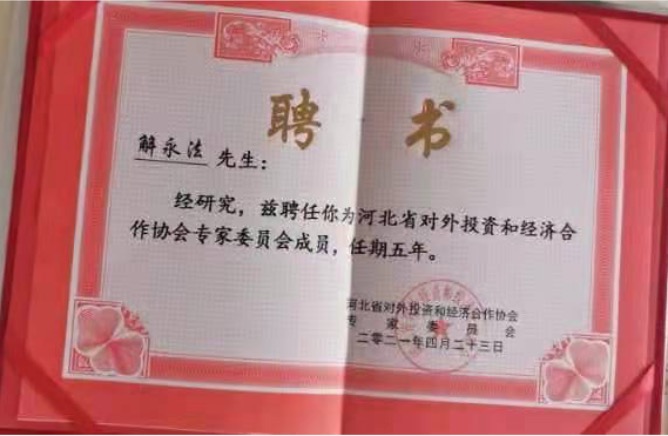 聘 书
解永法 先生：
经研究，兹聘任你为河北省对外投资和经济合
作协会专家委员会成员，任期五年。
河北省对外投资和经济合作协会
专家委员会
二零二一年四月二十三日